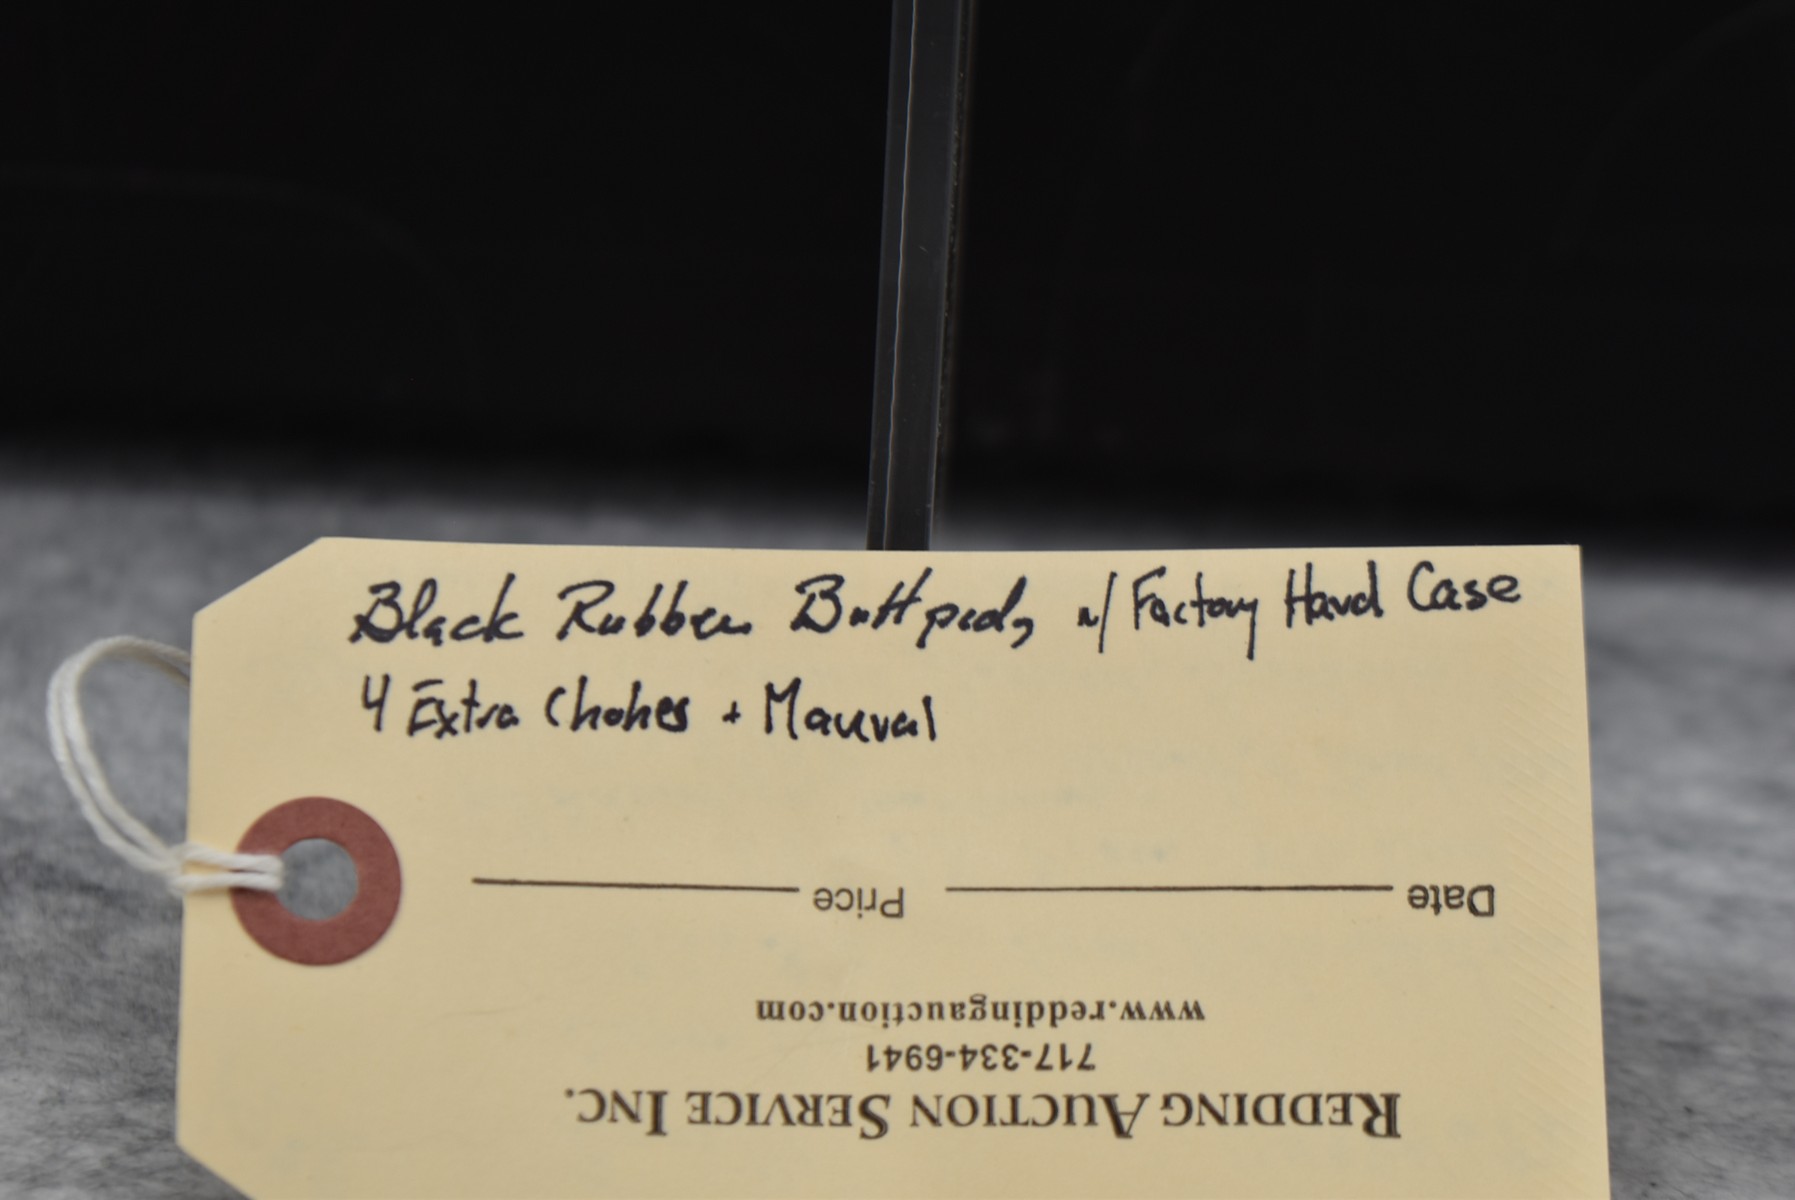 Black Rubber Buttpad, w/ Factory Hard Case
4 Extra Chokes + Manual
REDDING AUCTION SERVICE INC.
717-334-6941
www.reddingauction.com
Date Price